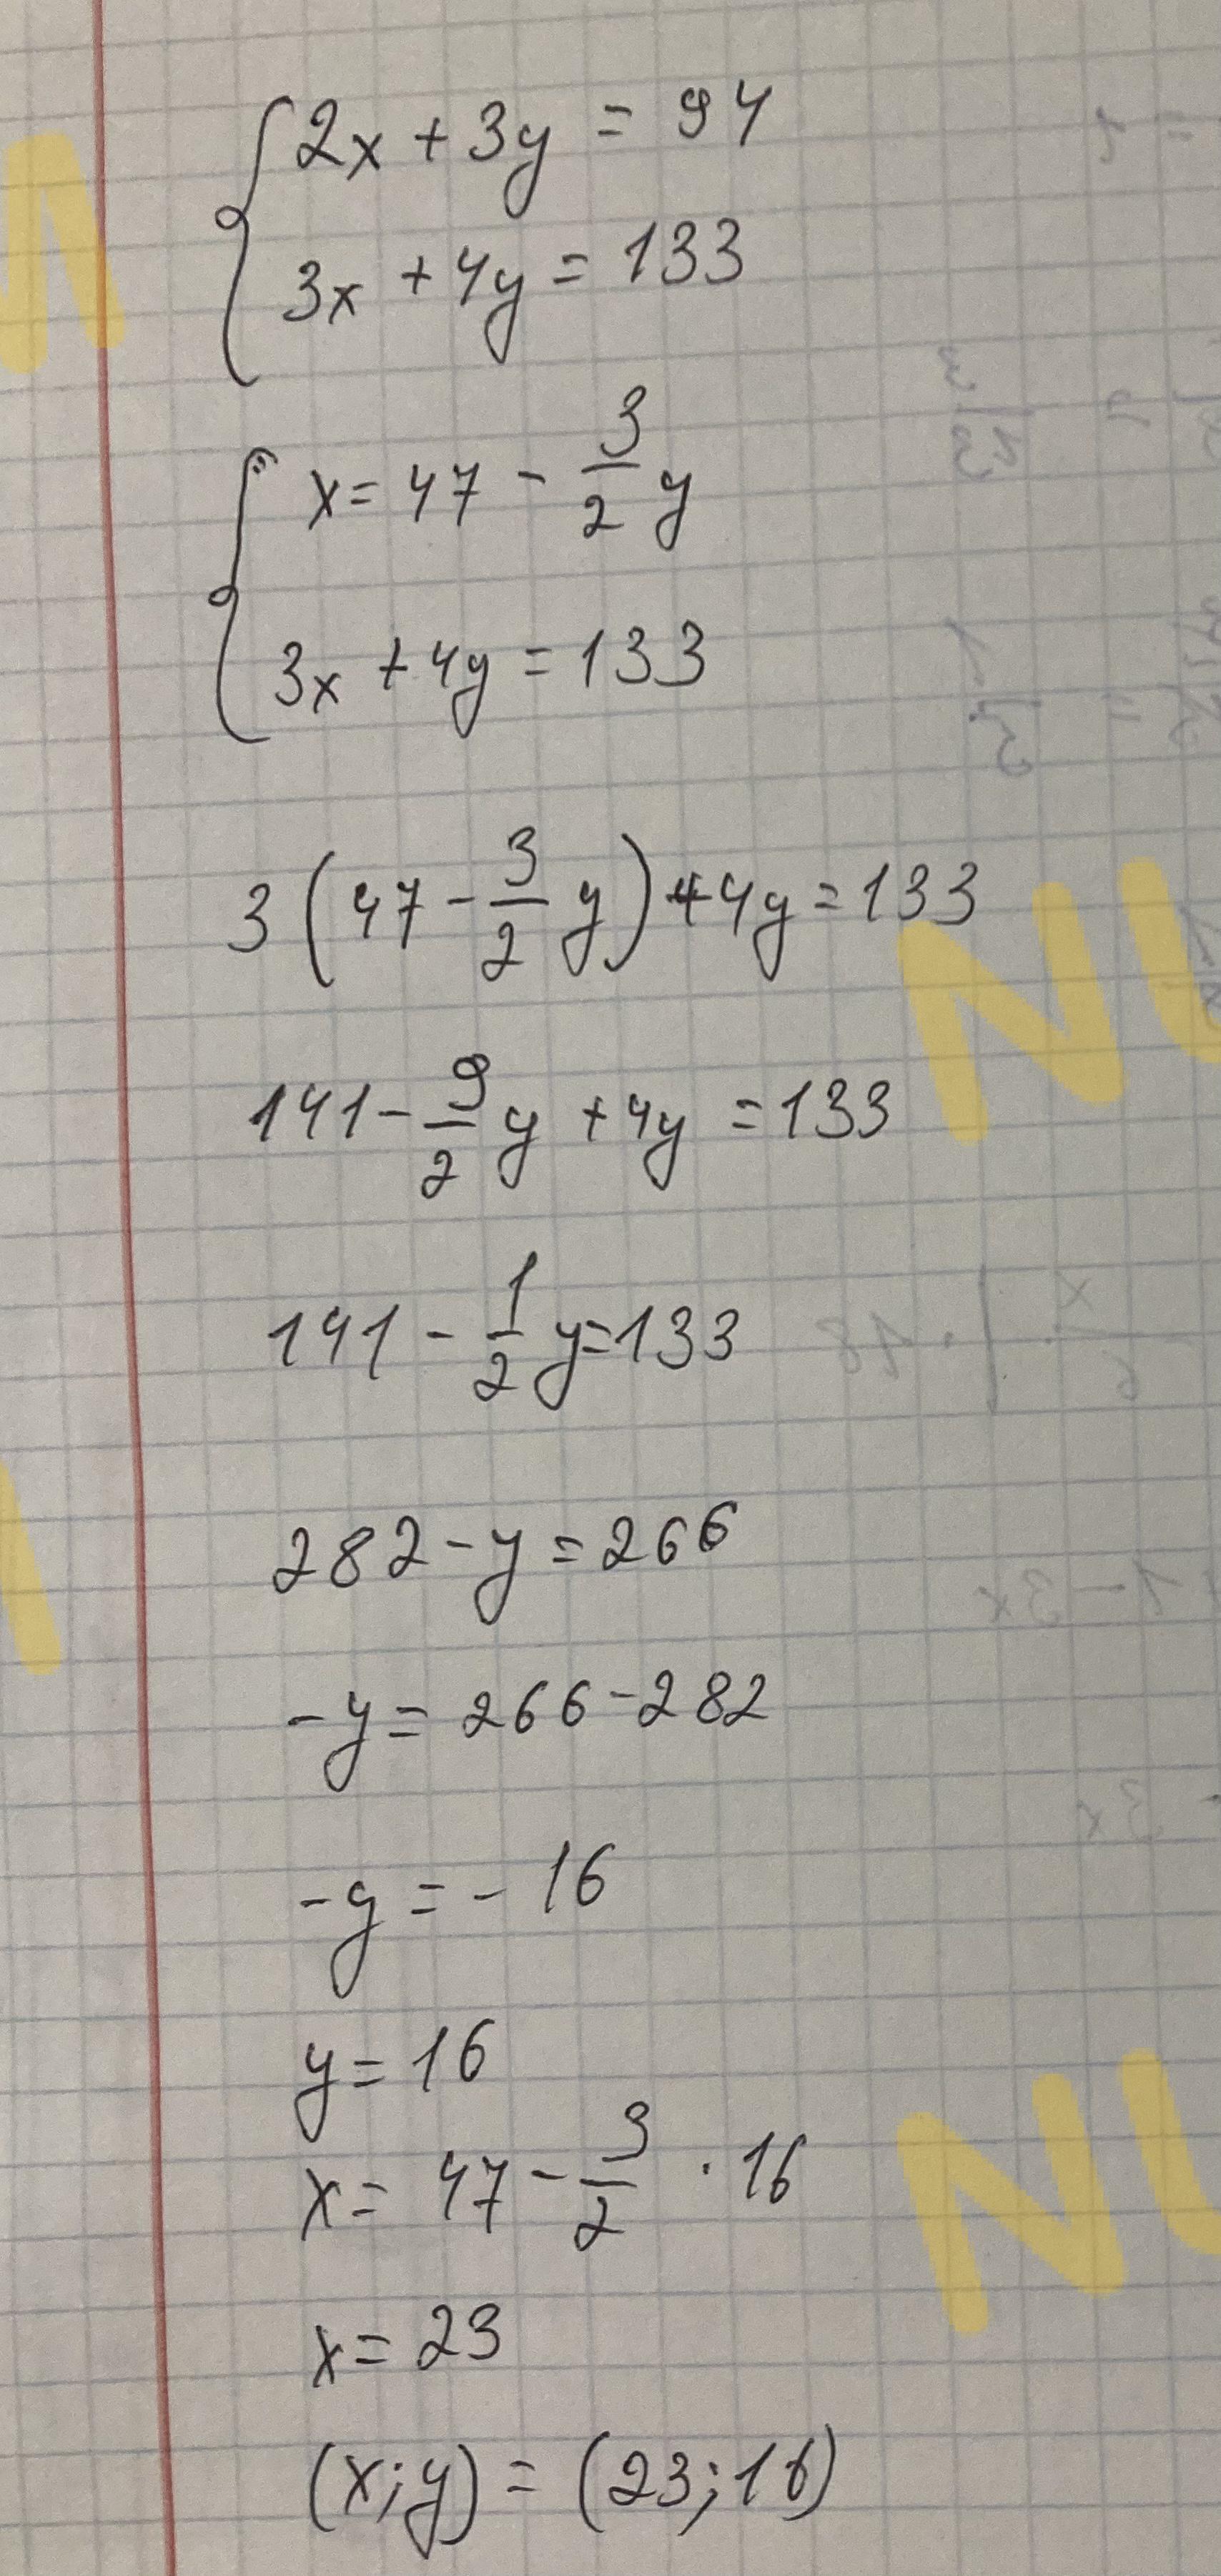 2x + 3y = 94
3x + 4y = 133
x = 47 - 3/2 y
3x + 4y = 133
3(47 - 3/2 y) + 4y = 133
141 - 9/2 y + 4y = 133
141 - 1/2 y = 133
282 - y = 266
-y = 266 - 282
-y = - 16
y = 16
x = 47 - 3/2 · 16
x = 23
(x; y) = (23; 16)